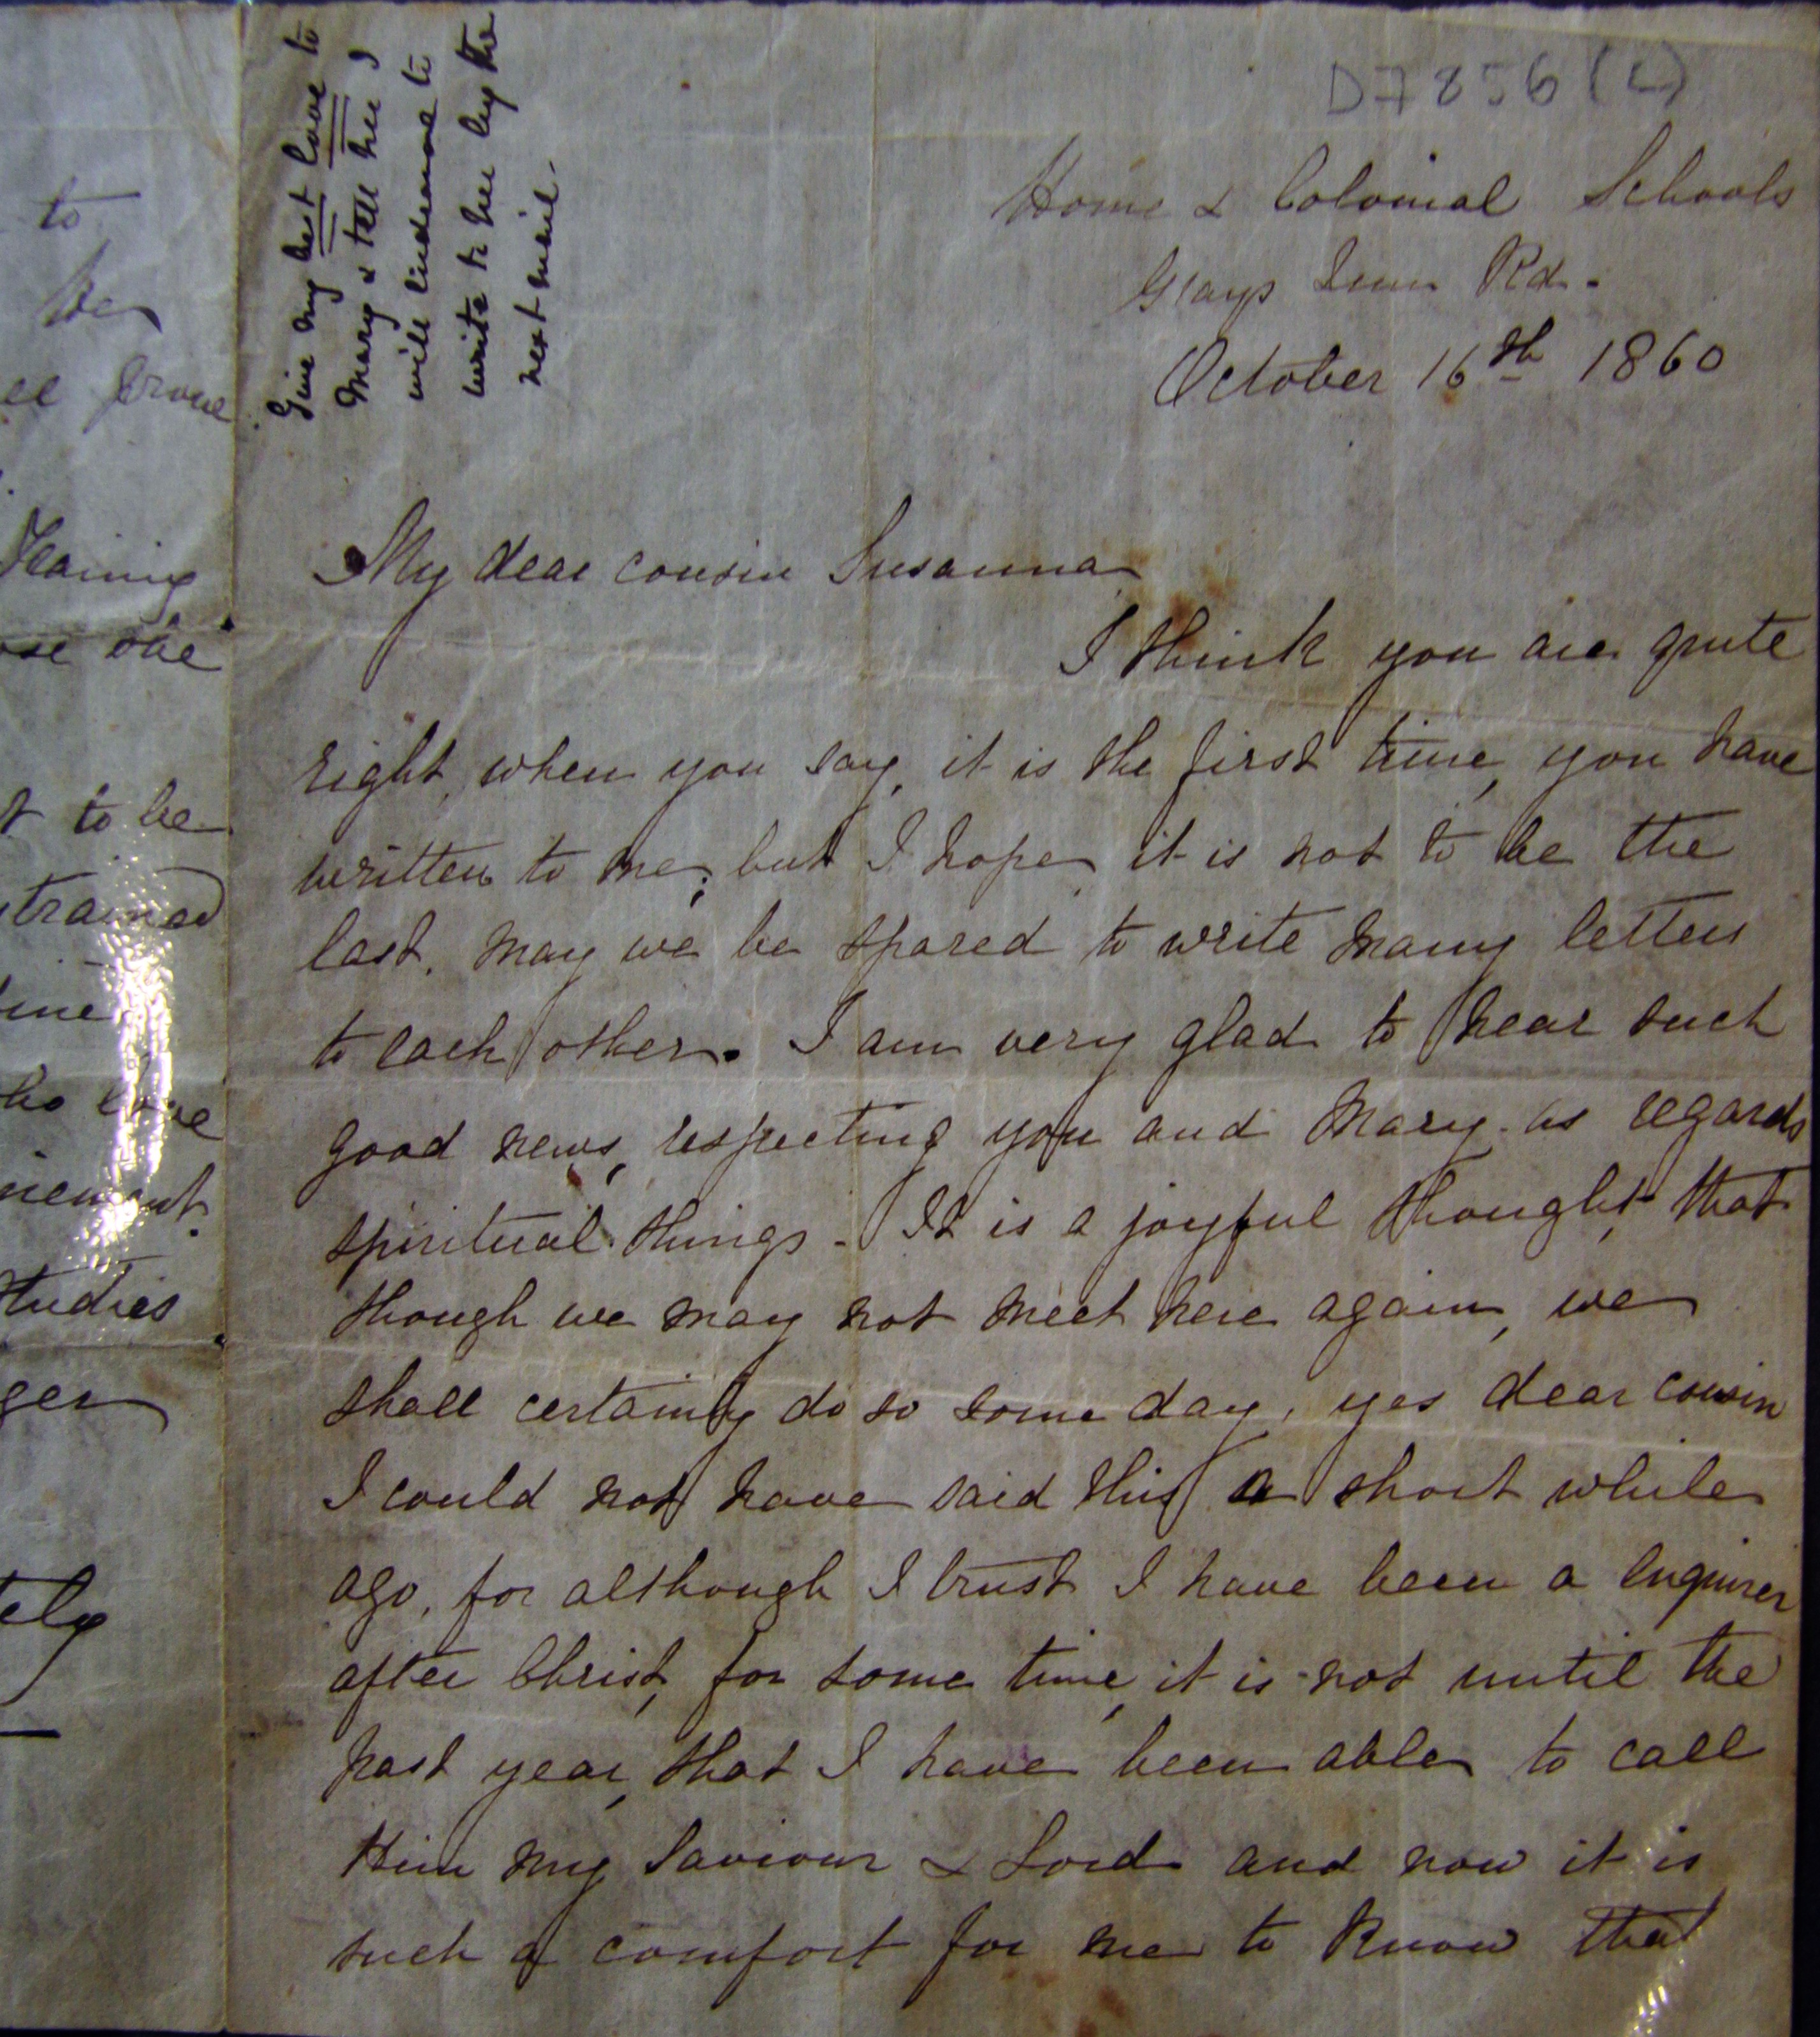 D7856(L)
Home & Colonial Schools
Grays Inn Rd.
October 16th 1860
Give my best love to
Mary & tell her I
will endeavour to
write to her by the
next mail.
My dear cousin Susanna
I think you are quite
right, when you say, it is the first time, you have
written to me; but I hope, it is not to be the
last. may we be spared to write many letters
to each other. I am very glad to hear such
good news, respecting you and Mary. as regards
spiritual things. It is a joyful thought, that
though we may not meet here again, we
shall certainly do so some day, yes dear cousin
I could not have said this a short while
ago, for although I trust I have been a enquirer
after Christ, for some time, it is not until the
past year, that I have been able to call
Him my Saviour & Lord and now it is
such a comfort for me to know that
to
be
prove
Training
one
to be
trained
studies